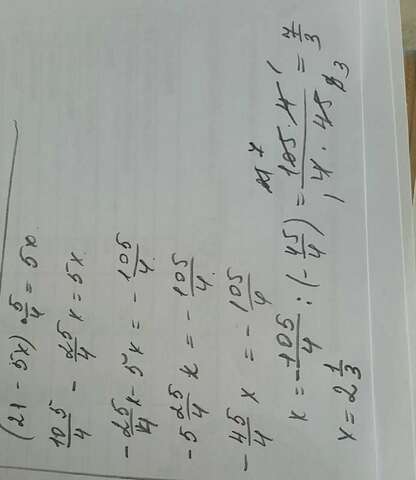 (21 - 5x) · 5/4 = 5x.
105/4 - 25/4 x = 5x.
- 25/4 x - 5x = - 105/4.
- 5 25/4 x = - 105/4.
- 45/4 x = - 105/4
x = - 105/4 : (- 45/4) = 105 · 4 / 4 · 45 = 7/3
x = 2 1/3